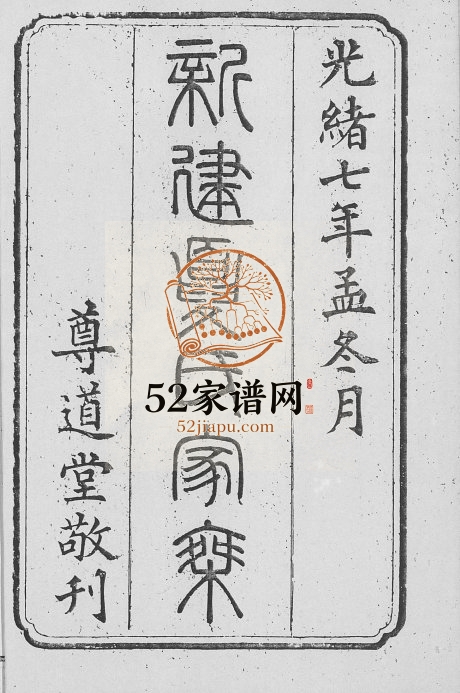 光緒七年孟冬月
新建夏氏家乘
尊道堂敬刊
52家谱网
52jiapu.com